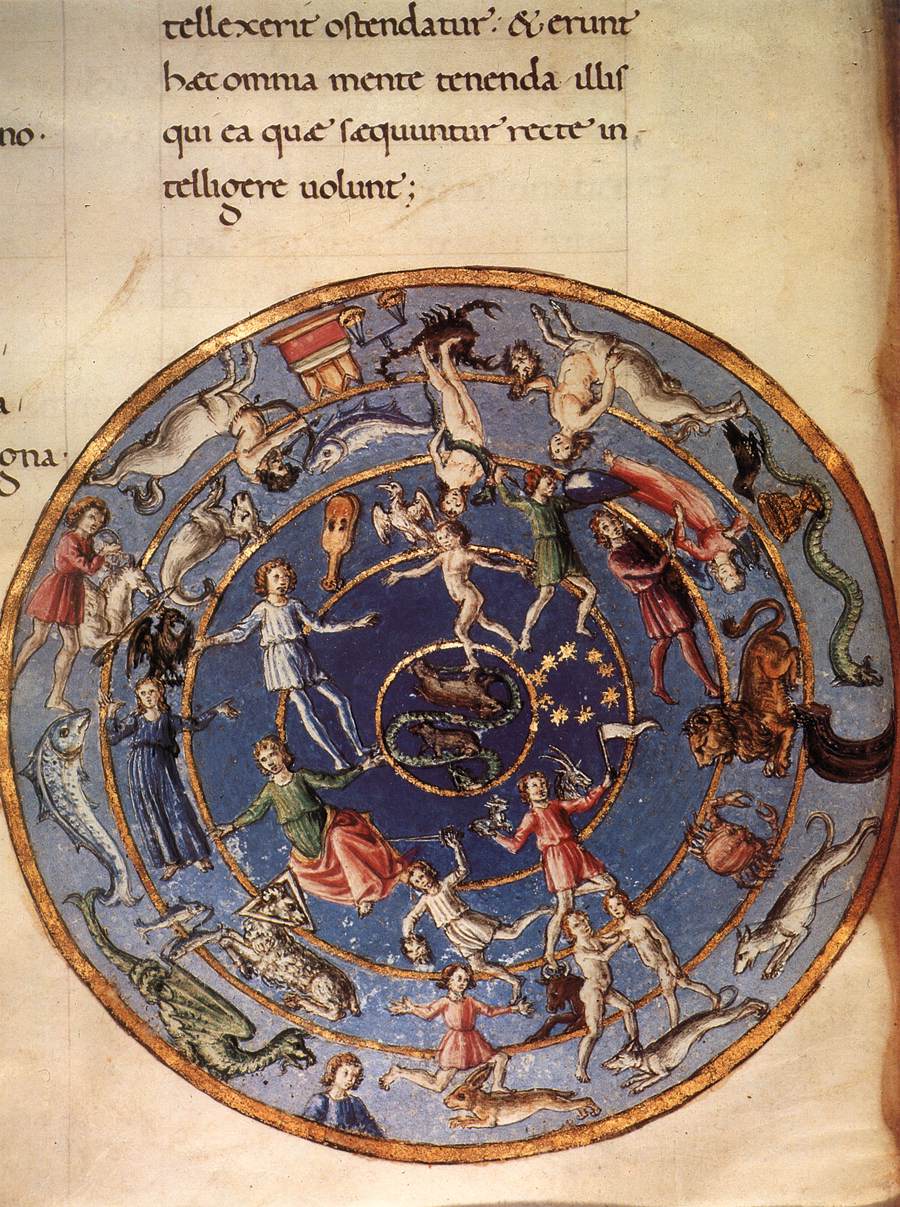 tellexerit ostendatur: & erunt
hæc omnia mente tenenda illis
qui ea quæ sæquuntur recte in
telligere uolunt;
no.
a
gna.